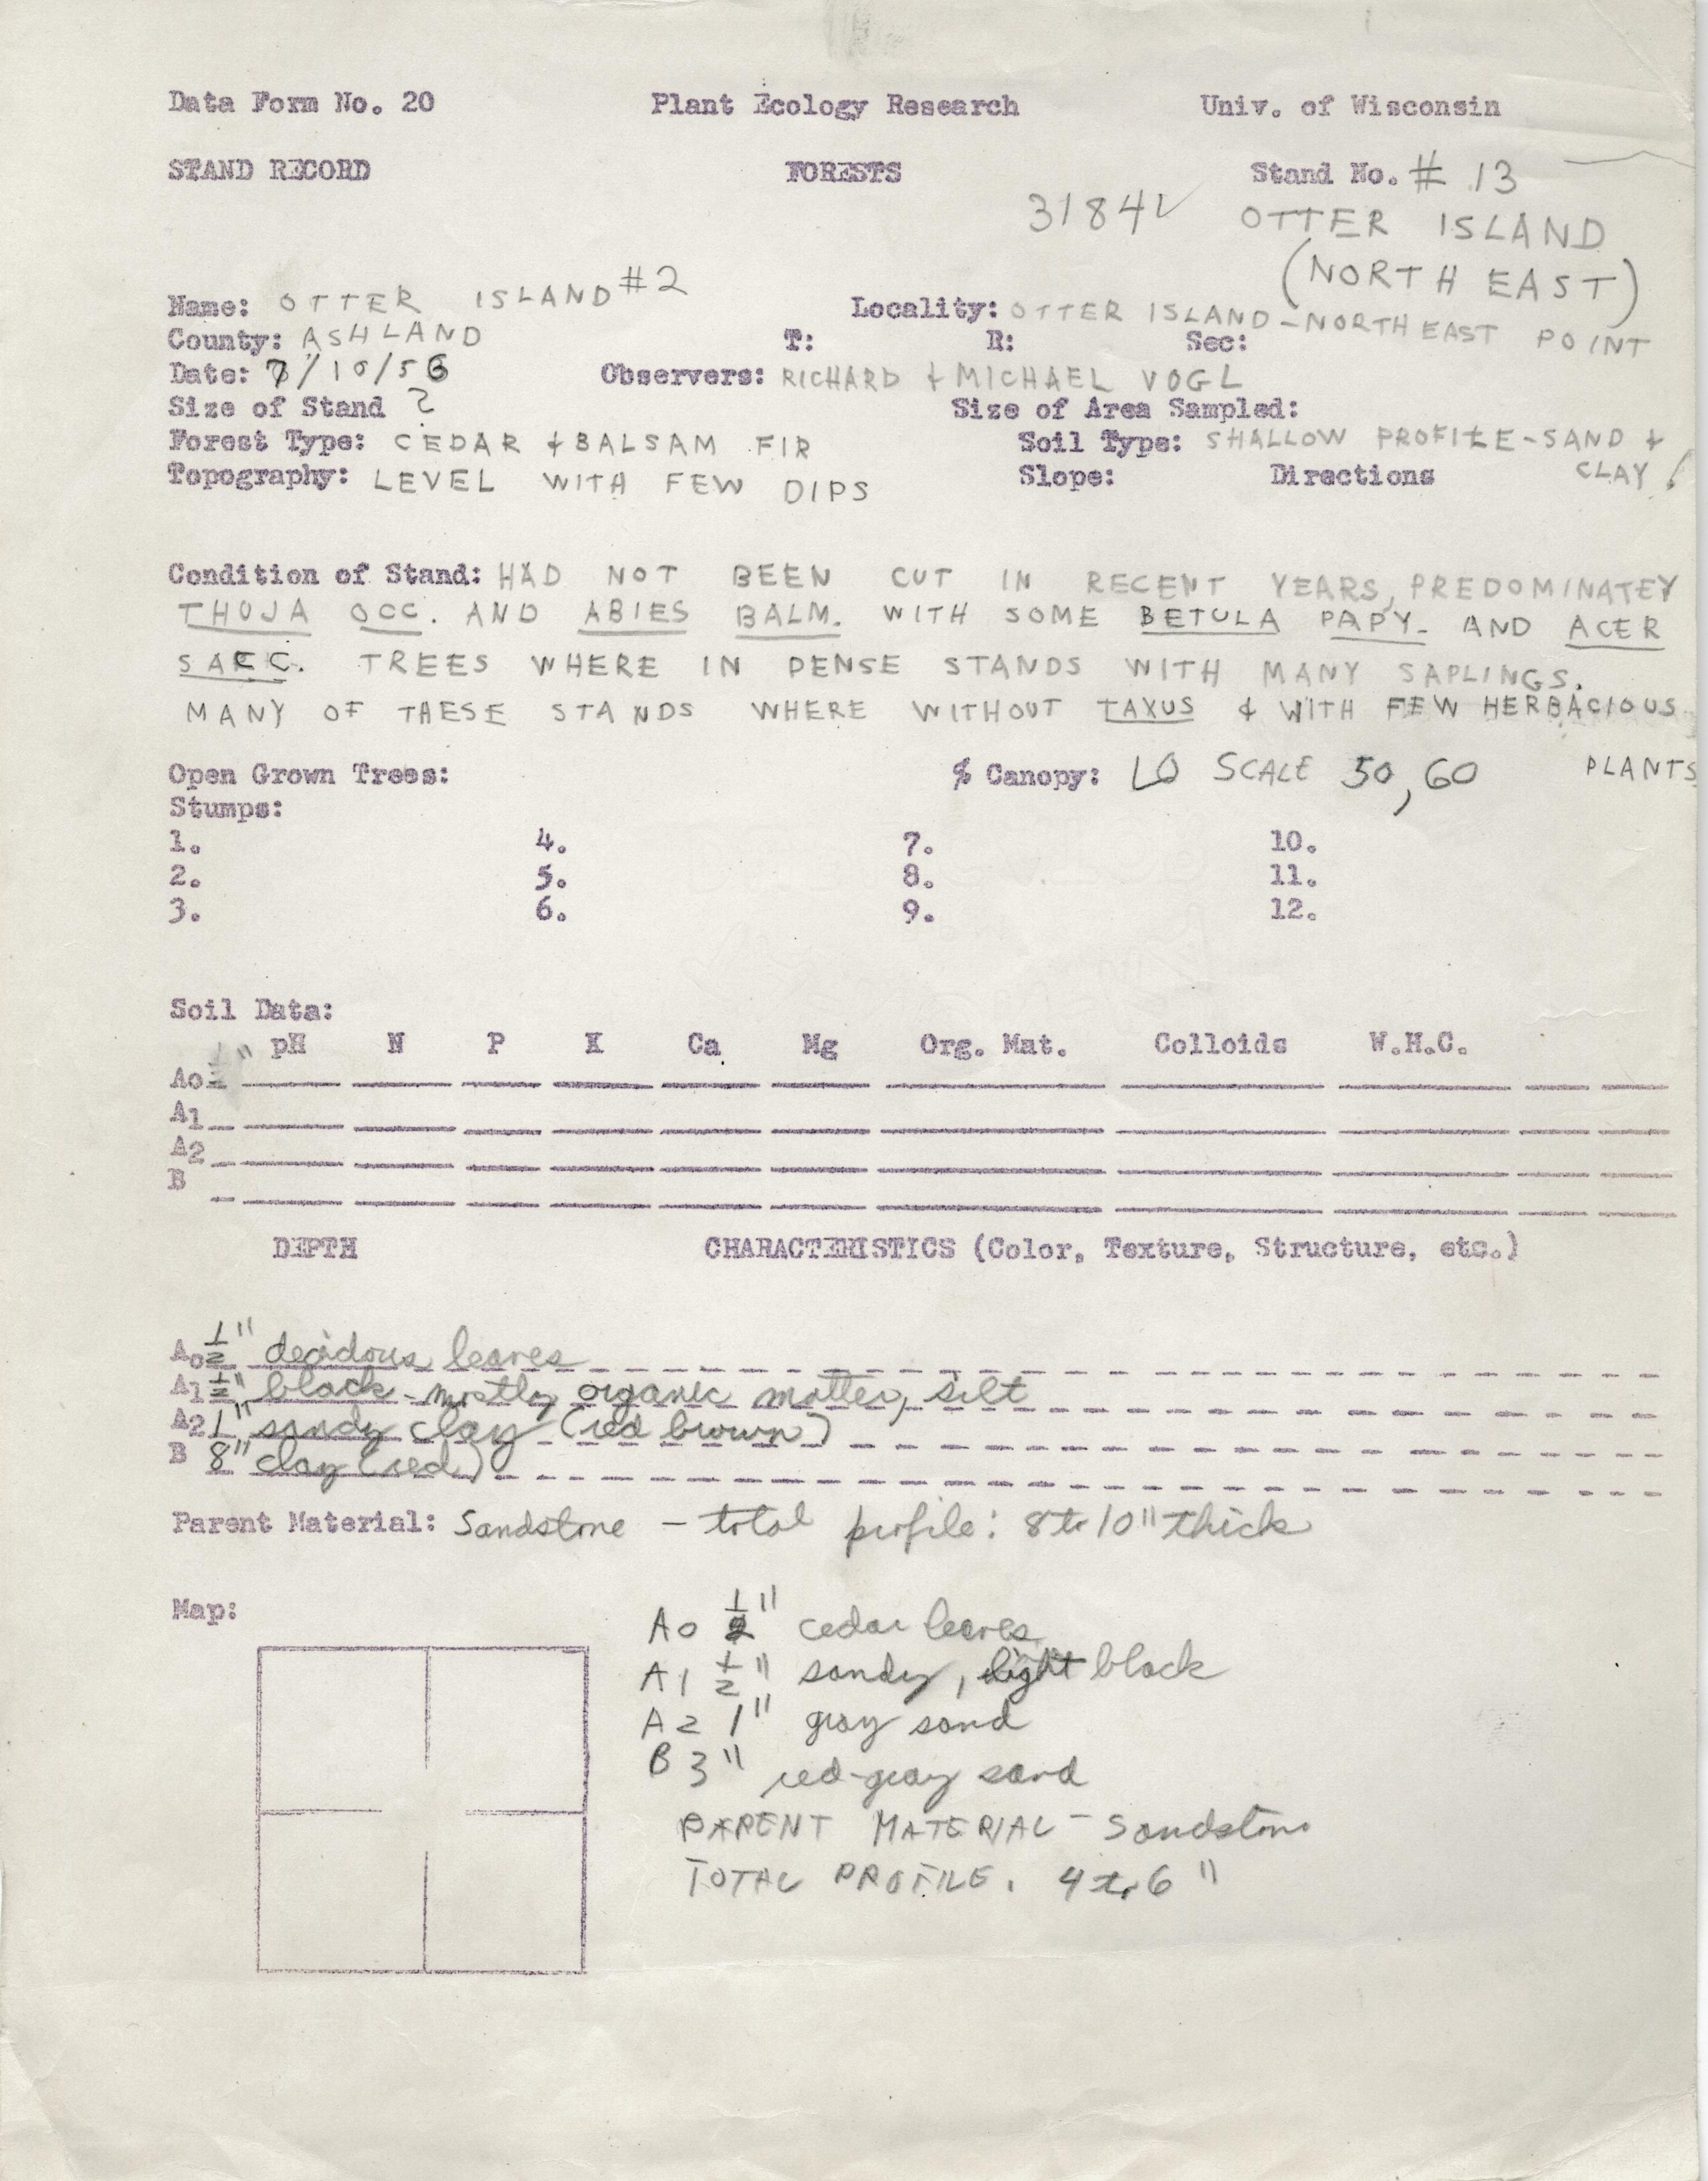 Data Form No. 20 Plant Ecology Research Univ. of Wisconsin
STAND RECORD FORESTS Stand No. # 13
3184 ✓ OTTER ISLAND
(NORTH EAST)
Name: OTTER ISLAND #2 Locality: OTTER ISLAND-NORTH EAST POINT
County: ASHLAND T: R: Sec:
Date: 7/10/56 Observers: RICHARD & MICHAEL VOGL
Size of Stand ? Size of Area Sampled:
Forest Type: CEDAR & BALSAM FIR Soil Type: SHALLOW PROFILE-SAND &
Topography: LEVEL WITH FEW DIPS Slope: Directions CLAY!
Condition of Stand: HAD NOT BEEN CUT IN RECENT YEARS, PREDOMINATEY
THUJA OCC. AND ABIES BALM. WITH SOME BETULA PAPY. AND ACER
SACC. TREES WHERE IN DENSE STANDS WITH MANY SAPLINGS.
MANY OF THESE STANDS WHERE WITHOUT TAXUS & WITH FEW HERBACIOUS
PLANTS
Open Grown Trees: % Canopy: LO SCALE 50, 60
Stumps:
1. 4. 7. 10.
2. 5. 8. 11.
3. 6. 9. 12.
Soil Data:
pH N P K Ca Mg Org. Mat. Colloids W.H.C.
Ao 1/2"
A1
A2
B
DEPTH CHARACTERISTICS (Color, Texture, Structure, etc.)
Ao 1/2" decidous leaves
A1 1/2" black-mostly organic matter, silt
A2 1" sandy clay (red brown)
B 8" clay (red)
Parent Material: Sandstone - total profile: 8 to 10" thick
Map:
Ao 1/2" cedar leaves
A1 1/2" sandy, light black
A2 1" gray sand
B 3" red-gray sand
PARENT MATERIAL - Sandstone
TOTAL PROFILE. 4 to 6"